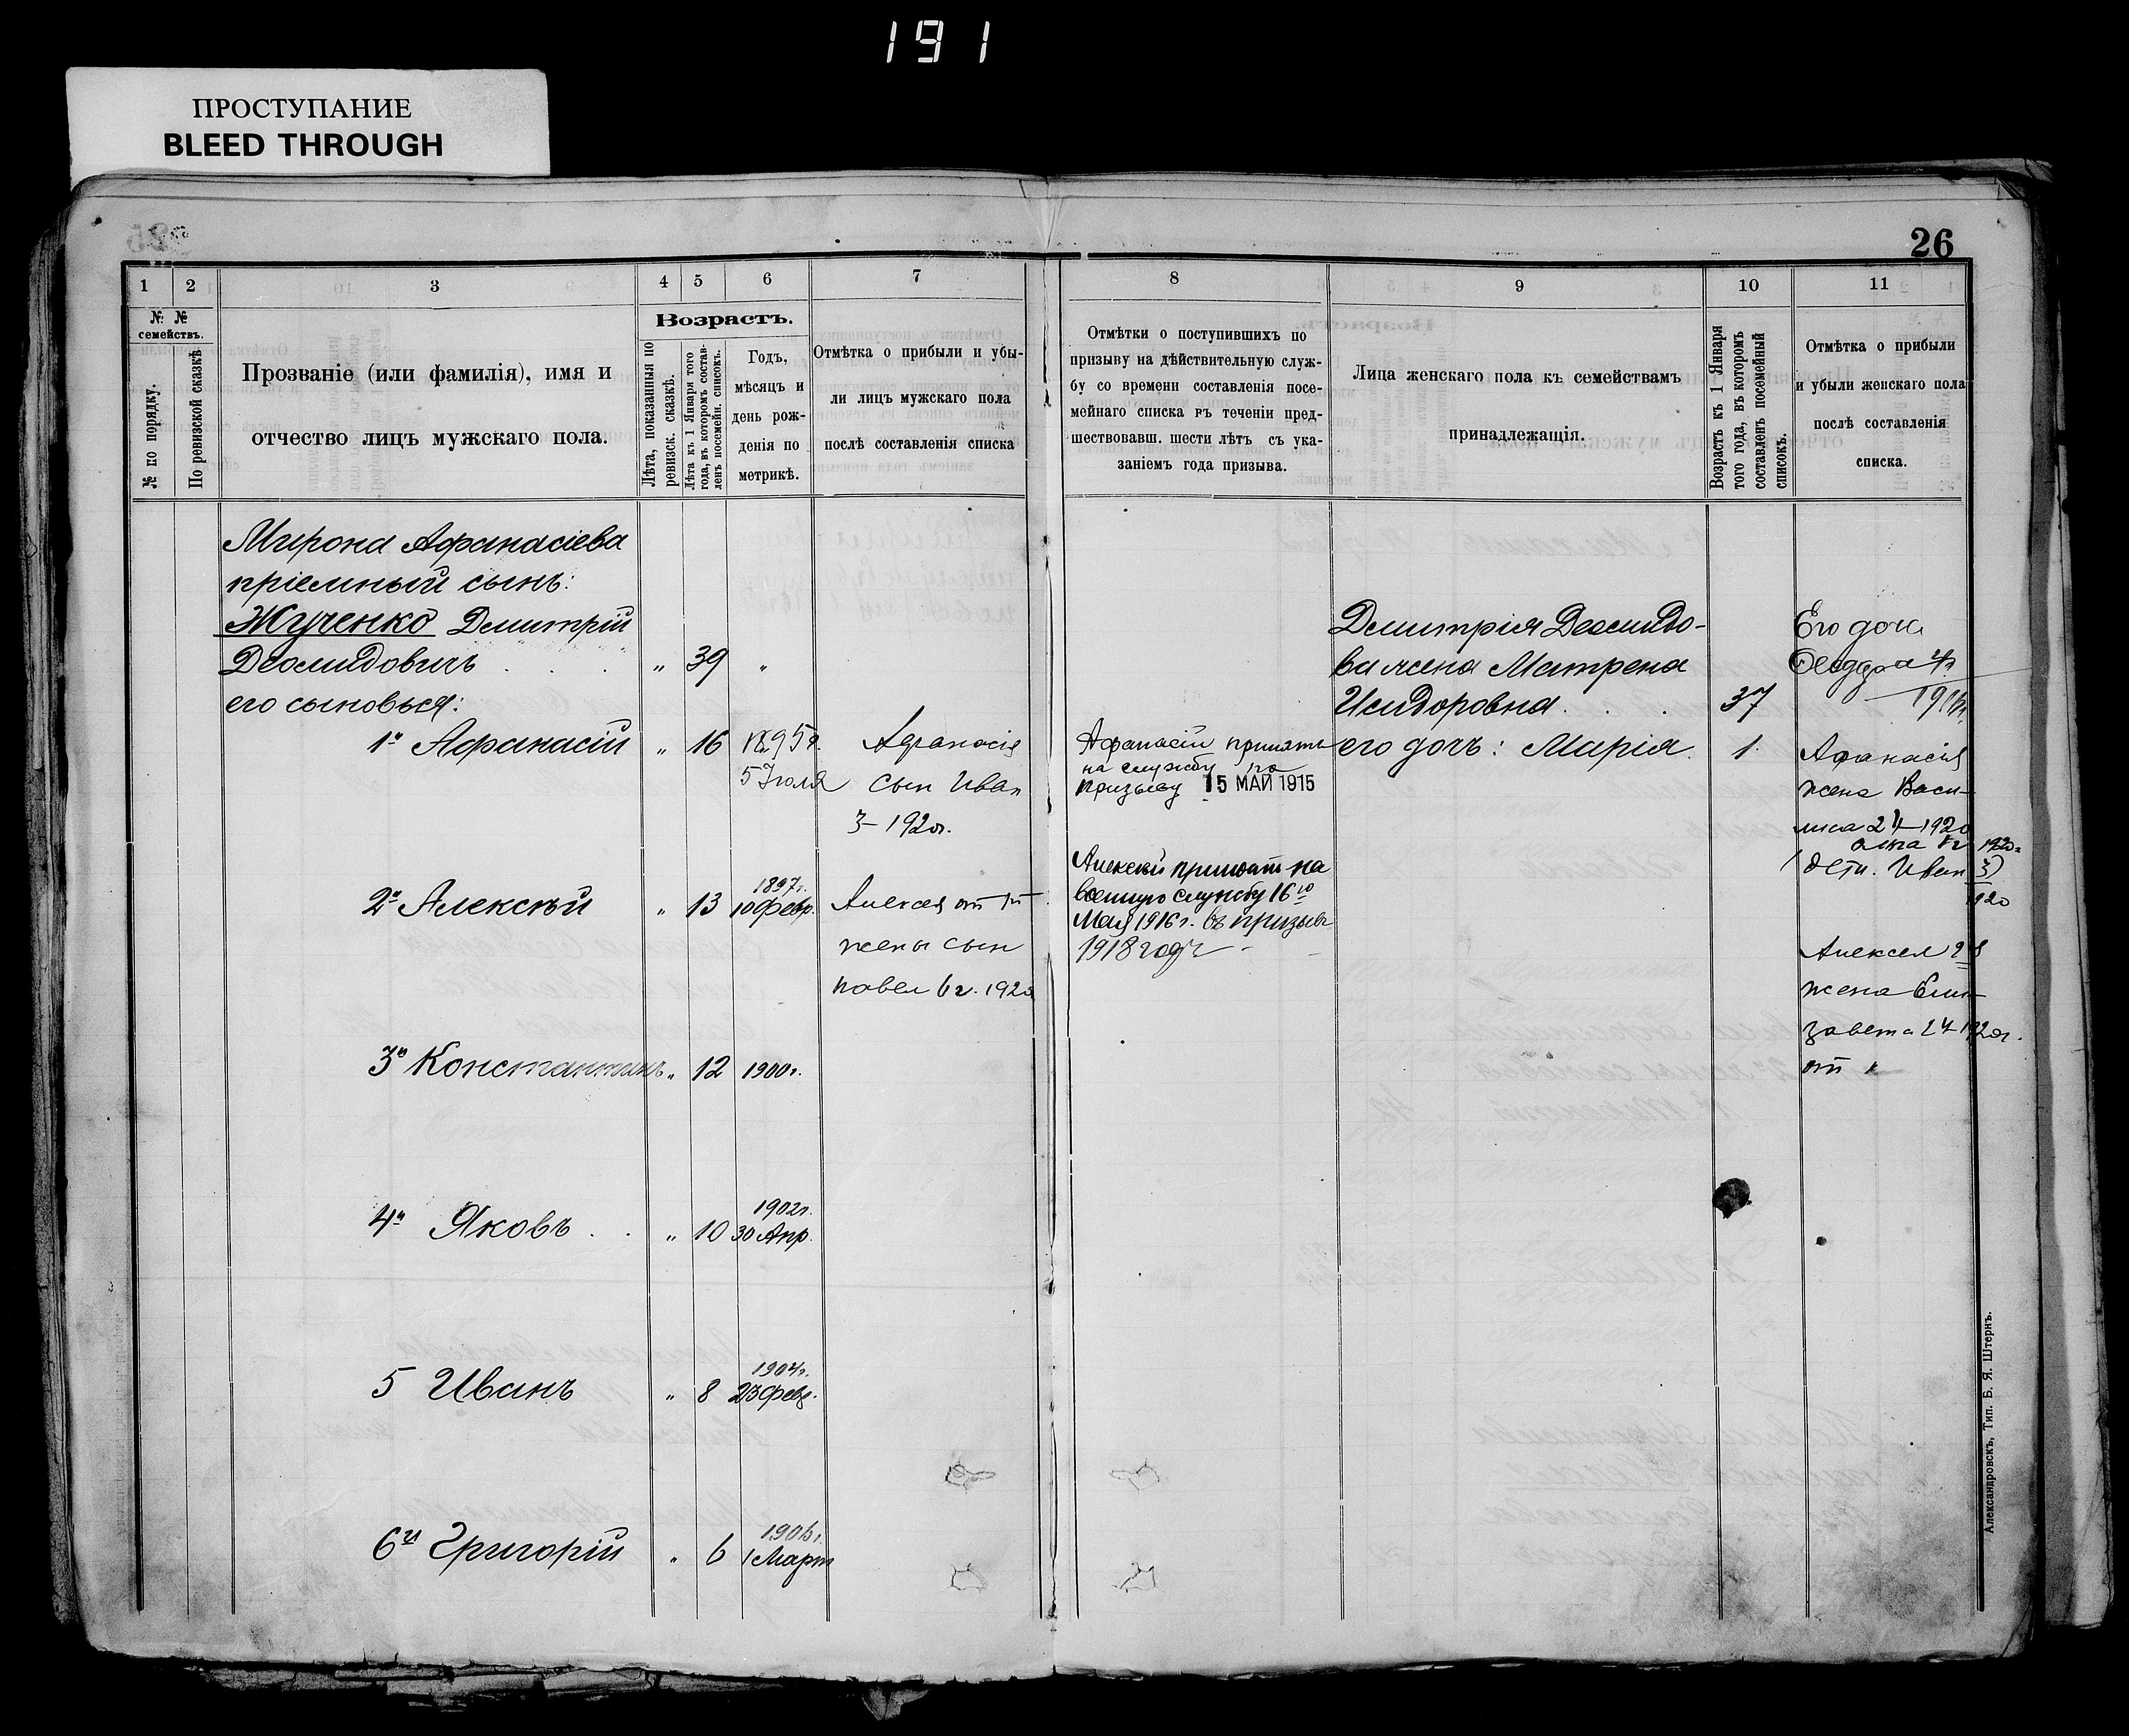 191
ПРОСТУПАНИЕ
BLEED THROUGH
26
1 2 3 4 5 6 7 8 9 10 11
№ №
семействъ.
№ по порядку.
По ревизской сказкѣ
Прозваніе (или фамилія), имя и
отчество лицъ мужскаго пола.
Возрастъ.
Лѣта, показанныя по
ревизск. сказкѣ.
Лѣта къ 1 Января того
года, въ которомъ состав-
ленъ посемейн. списокъ.
Годъ,
мѣсяцъ и
день рож-
денія по
метрикѣ.
Отмѣтка о прибыли и убы-
ли лицъ мужскаго пола
послѣ составленія списка
Отмѣтки о поступившихъ по
призыву на дѣйствительную служ-
бу со времени составленія посе-
мейнаго списка въ теченіи пред-
шествовавш. шести лѣтъ съ ука-
заніемъ года призыва.
Лица женскаго пола къ семействамъ
принадлежащія.
Возрастъ къ 1 Января
того года, въ которомъ
составленъ посемейный
списокъ.
Отмѣтка о прибыли
и убыли женскаго пола
послѣ составленія
списка.
Мирона Афанасіева
пріемный сынъ:
Жученко Дмитрій
Деомидовичъ . . . „ 39 „
его сыновья:
1й Афанасій „ 16 1895г.
5 Іюля
Афанасія
сын Иван
3 – 1920г.
Афанасій принятъ
на службу по
призыву 15 МАЙ 1915
2й Алексѣй „ 13 1897г.
10 Февр.
Алексея от 1й
жены сын
Павел 6г. 1920
Алексѣй принят на
военную службу 16го
Мая 1916г. въ призывъ
1918 года
3й Константинъ „ 12 1900г.
4й Яковъ . . „ 10 1902г.
30 Апр.
5 Иванъ „ 8 1904г.
23 Февр.
6й Григорій „ 6 1906г.
1 Март
Дмитрія Деомидо-
ва жена Матрена
Исидоровна . . . 37
его дочь: Марія. 1.
Его доч
Афанасія
жена Васи-
лиса 24–1920
дети. Иван 3)
1920
Алексея
жена Ели-
завета 24–1920г.
Александровскъ, Тип. Б. Я. Штернъ.